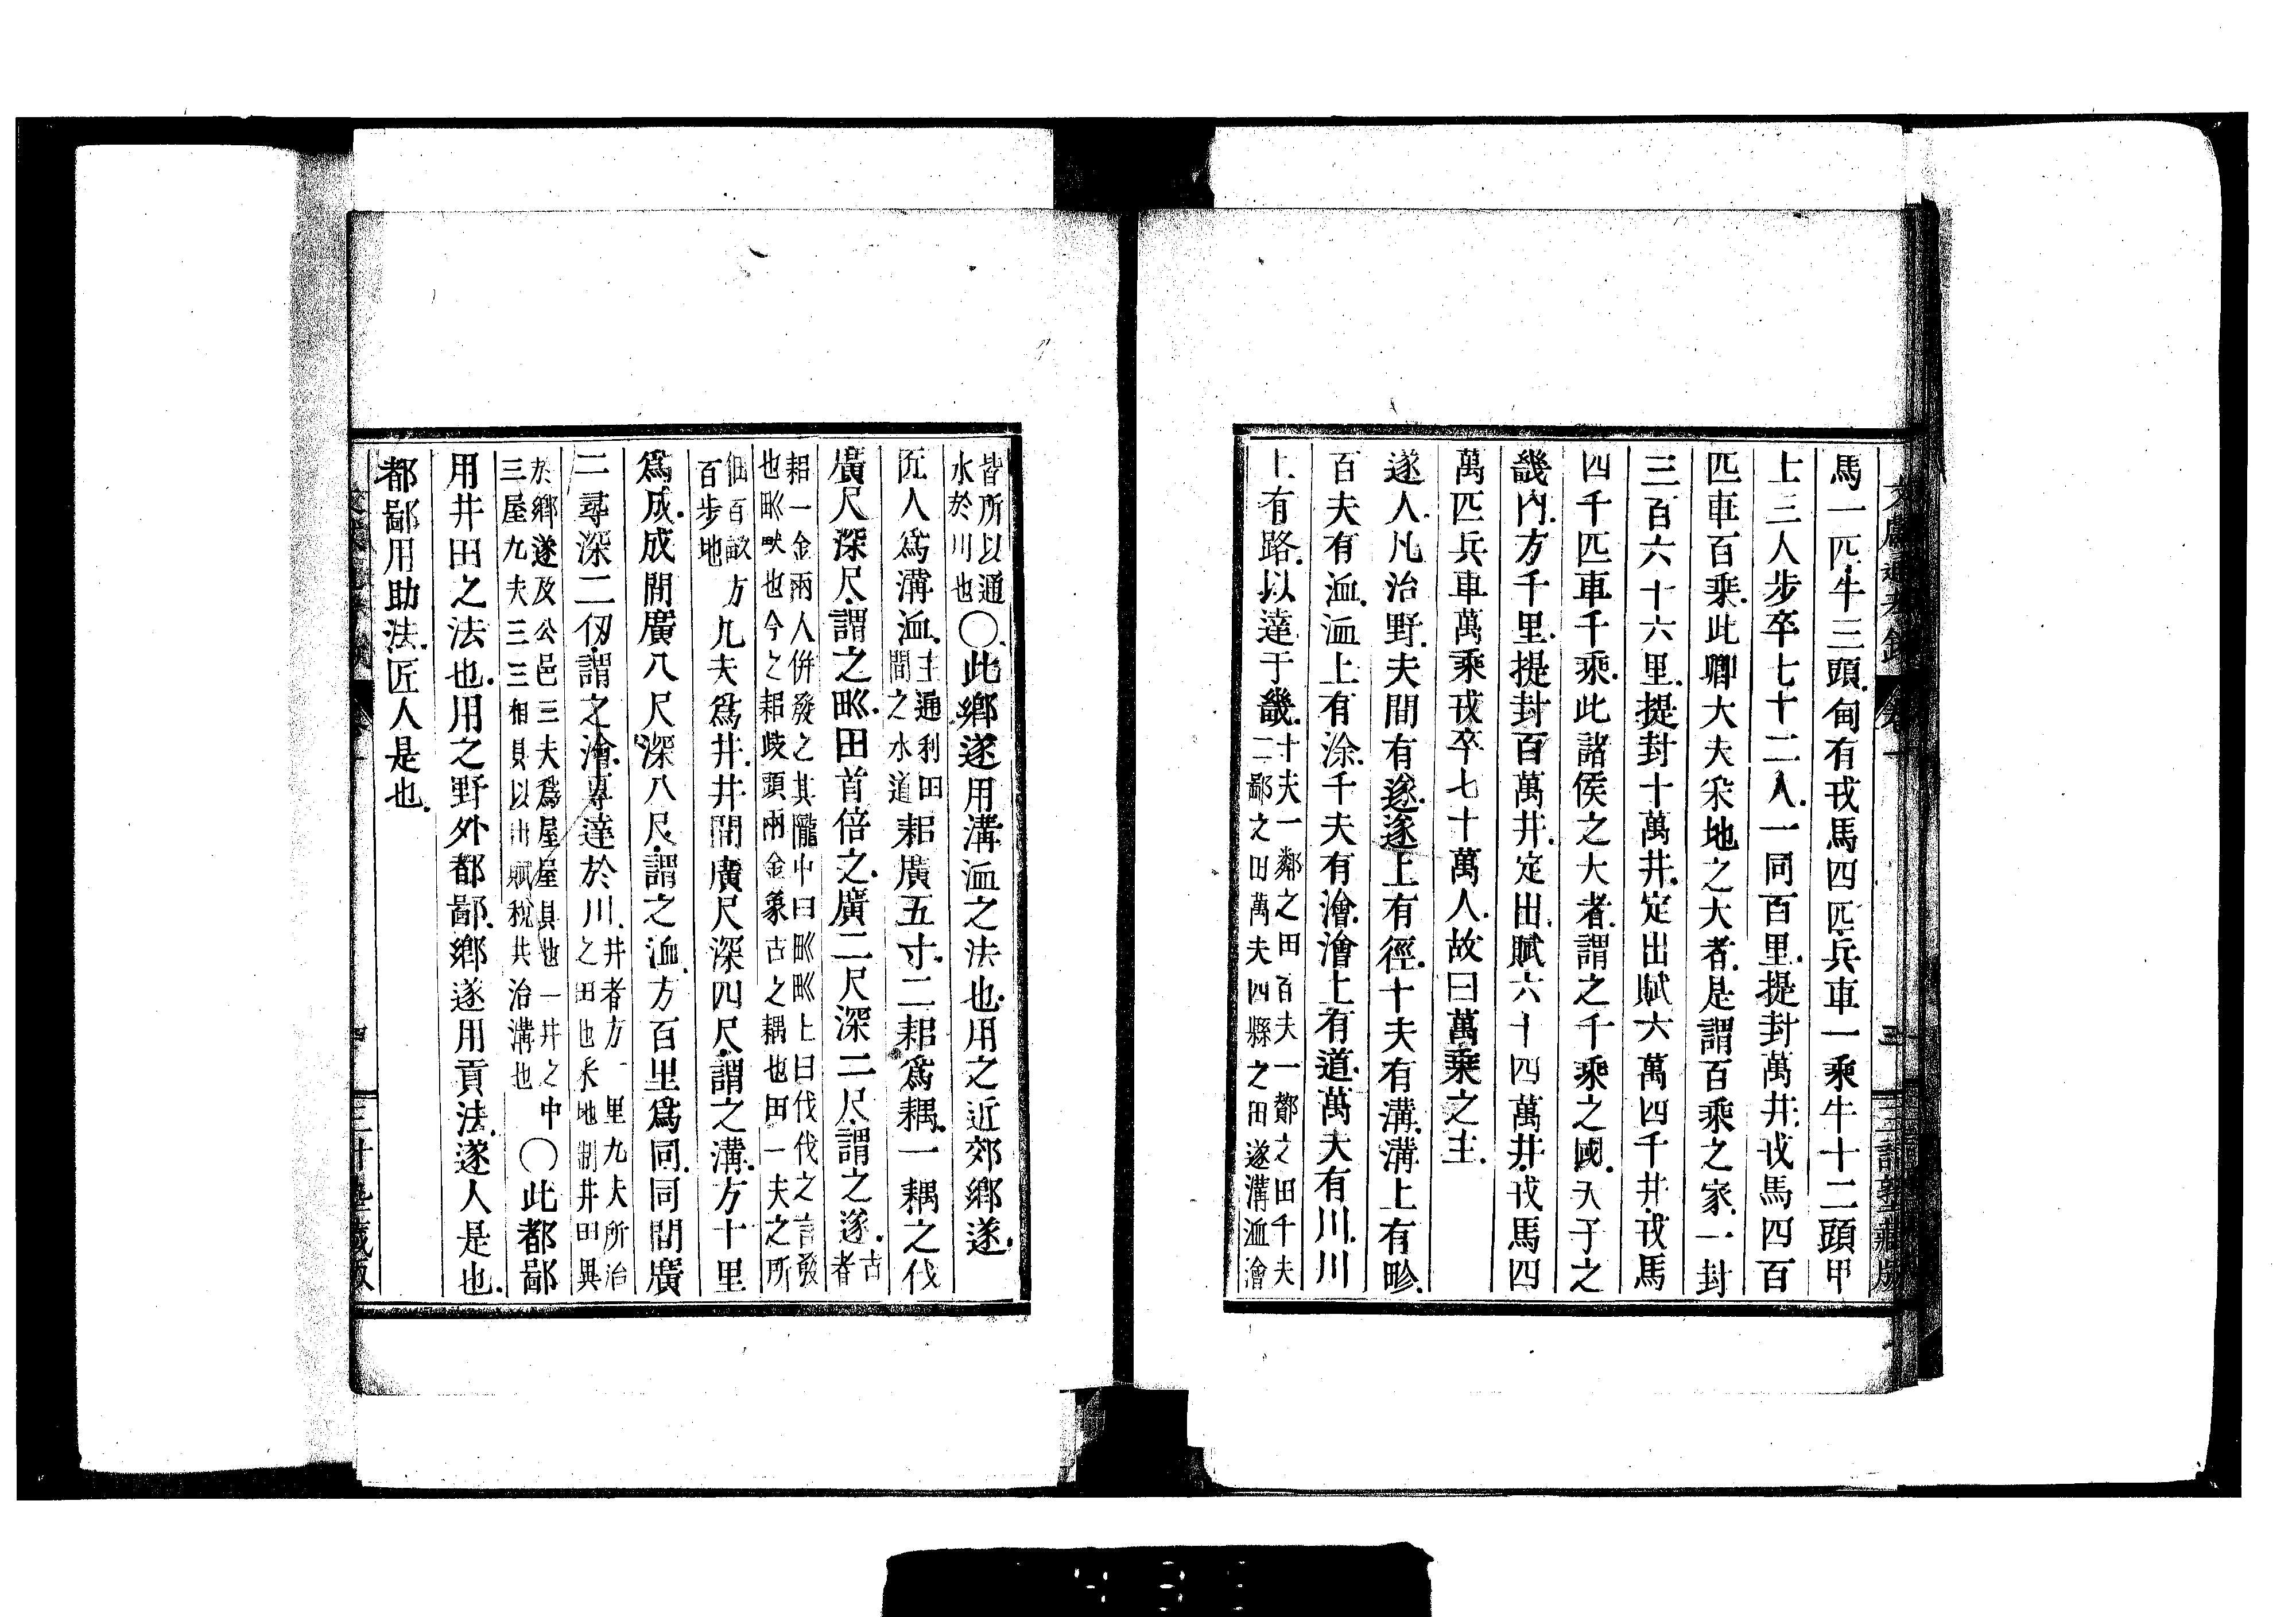 文獻通考鈔 卷一 三 三計塾藏版
馬一匹牛三頭甸有戎馬四匹兵車一乘牛十二頭甲
士三人步卒七十二人一同百里提封萬井戎馬四百
匹車百乘此卿大夫采地之大者是謂百乘之家一封
三百六十六里提封十萬井定出賦六萬四千井戎馬
四千匹車千乘此諸侯之大者謂之千乘之國天子之
畿內方千里提封百萬井定出賦六十四萬井戎馬四
萬匹兵車萬乘戎卒七十萬人故曰萬乘之主
遂人凡治野夫間有遂遂上有徑十夫有溝溝上有畛
百夫有洫洫上有涂千夫有澮澮上有道萬夫有川川
上有路以達于畿十夫一鄰之田百夫一酇之田千夫二鄙之田萬夫四縣之田遂溝洫澮
皆所以通水於川也〇此鄉遂用溝洫之法也用之近郊鄉遂
匠人爲溝洫主通利田間之水道耜廣五寸二耜爲耦一耦之伐
廣尺深尺謂之𤰝田首倍之廣二尺深二尺謂之遂古者
耜一金兩人併發之其隴中曰𤰝𤰝上曰伐伐之言發也𤰝畎也今之耜歧頭兩金象古之耦也田一夫之所
佃百畝百步地方九夫爲井井間廣尺深四尺謂之溝方十里
爲成成間廣八尺深八尺謂之洫方百里爲同同間廣
二尋深二仞謂之澮專達於川井者方一里九夫所治之田也采地制井田異
於鄉遂及公邑三夫爲屋屋具也一井之中三屋九夫三三相具以出賦稅共治溝也〇此都鄙
用井田之法也用之野外都鄙鄉遂用貢法遂人是也
都鄙用助法匠人是也
四 三計塾藏版